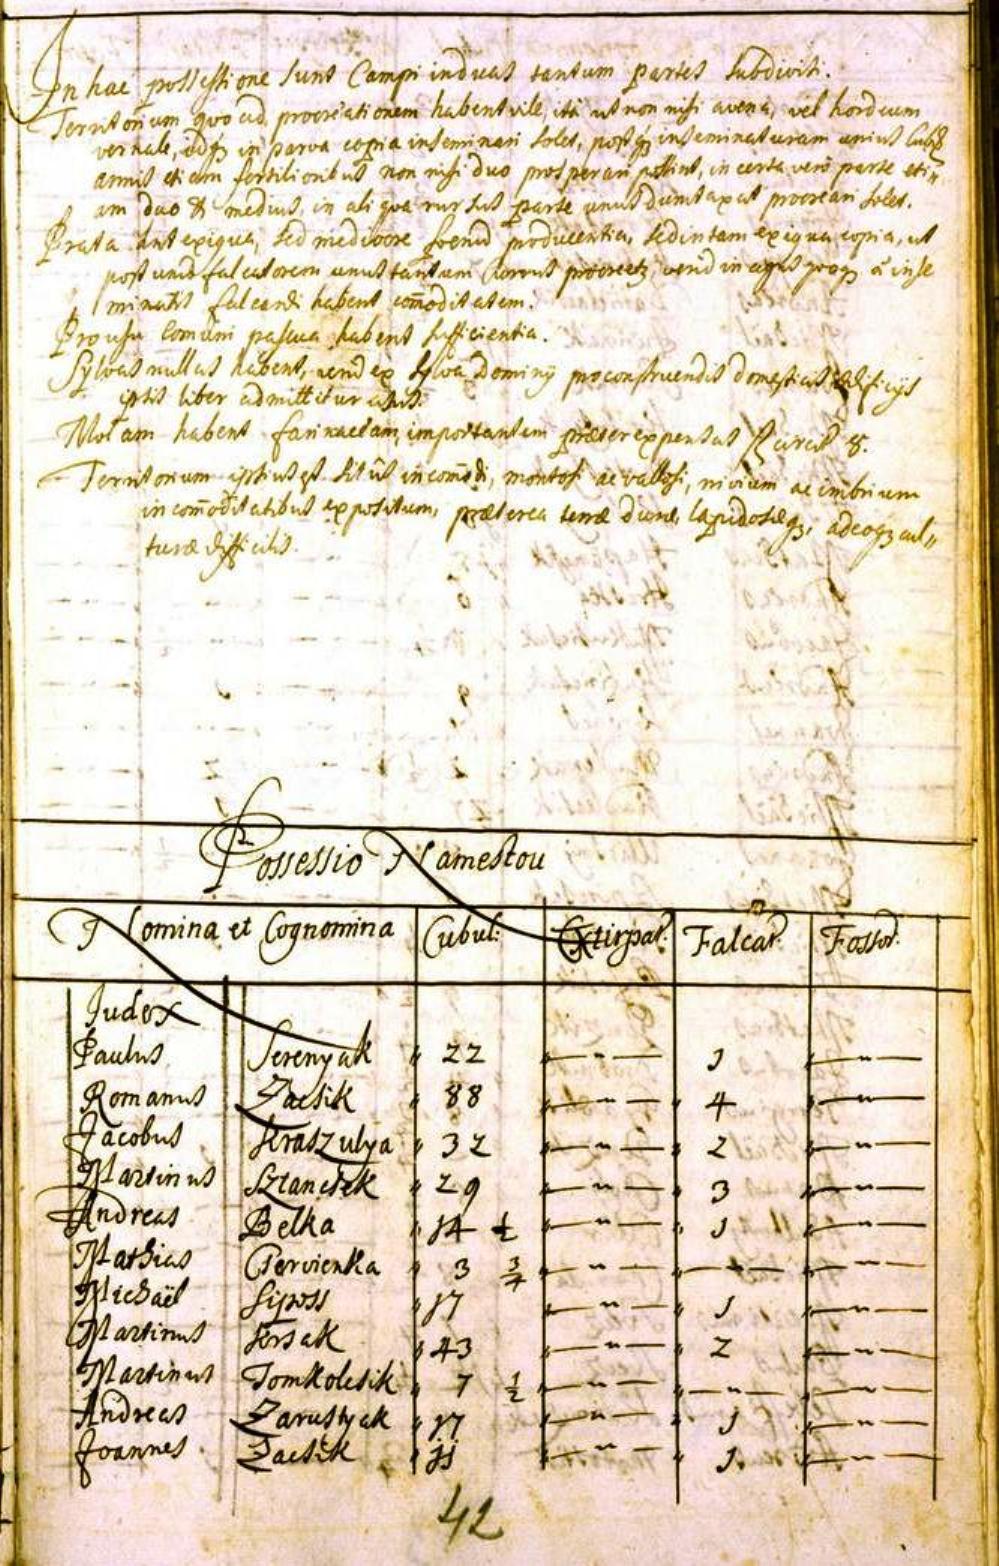 In hac possessione sunt Campi in duas tantum partes subdivisi.
Territorium quoad procreationem habent vile, ita ut non nisi avena, vel hordeum
vernale, idq3 in parva copia inseminari solet, postq3 inseminaturam unius Cubul
annis etiam fertilioribus non nisi duo prosperari possint, in certa vero parte eti„
am duo & medius, in aliqva rursus parte unus dumtaxat procreari solet.
Prata sunt exiqua, sed mediocre foenum producentia, sed in tam exigua copia, ut
post unum falcatorem unus tantum Currus procreetur, vero in agris
minatis falcandi habent comoditatem.
Pro usu comuni pascua habent sufficientia.
Sylvas nullas habent, vero ex sylva Dominij pro construendis domesticis aedificijs
ipsis liber admittitur usus.
Molam habent farinaceam, importantem praeter expensas 8.
Territorium ipsius est situs incomodi, montosi ac vallosi, nivium ac imbrium
incomoditatibus expositum, praeterea terrae durae, lapidosaeq3, adeoq3 cul„
turae difficilis.
Possessio Namestou
Nomina et Cognomina Cubul: Extirpat: Falcat. Fossor.
Judex
Paulus Serenyak " 22 " — " — 1 " — " —
Romanus Zacsik " 88 " — " — " 4 " — " —
Jacobus Kraszulya " 32 " — " — " 2 " — " —
Martinus Sztancsek " 29 " — " — " 3 " — " —
Andreas Belka " 14 1/2 " — " — " 1 " — " —
Mathias Cservienka " 3 3/4 " — " — " — " — " — " —
Michaël Siposs " 17 " — " — " 1 " — " —
Martinus Korsak " 43 " — " — " 2 " — " —
Martinus Tomkolesik " 7 1/2 " — " — " — " — " — " —
Andreas Zarustyak " 17 " — " — " 1 " — " —
Joannes Zacsik " 11 " — " — " 1. " — " —
42